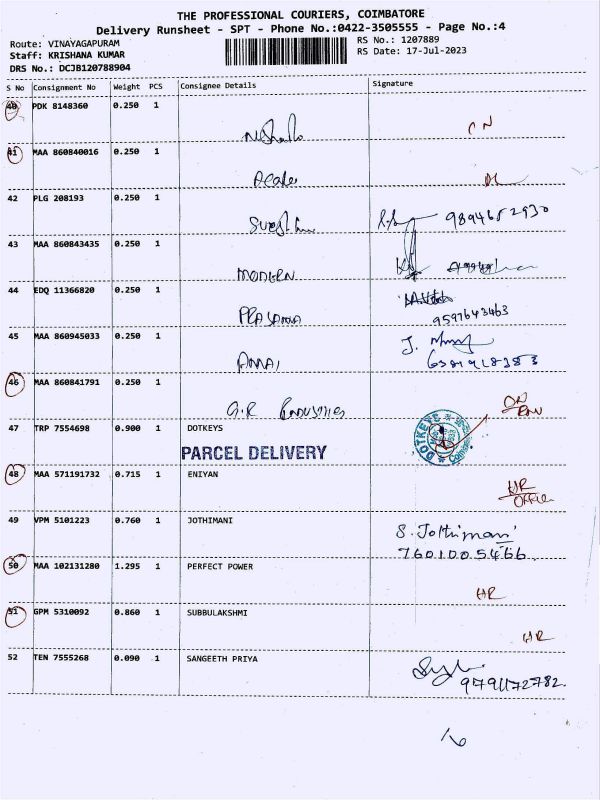 THE PROFESSIONAL COURIERS, COIMBATORE
Delivery Runsheet - SPT - Phone No.:0422-3505555 - Page No.:4
Route: VINAYAGAPURAM
RS No.: 1207889
Staff: KRISHANA KUMAR
RS Date: 17-Jul-2023
DRS No.: DCJB120788904
S No Consignment No Weight PCS Consignee Details Signature
40 PDK 8148360 0.250 1
41 MAA 860840016 0.250 1
42 PLG 208193 0.250 1
9894652930
43 MAA 860843435 0.250 1
MODERN
44 EDQ 11366820 0.250 1
PRASANNA
9597643463
45 MAA 860945033 0.250 1
6381918383
46 MAA 860841791 0.250 1
G.R INDUSTRIES
47 TRP 7554698 0.900 1 DOTKEYS
PARCEL DELIVERY
DOTKEYS
48 MAA 571191732 0.715 1 ENIYAN
HR
OFFICE
49 VPM 5101223 0.760 1 JOTHIMANI
S. Jothimani
7601005466
50 MAA 102131280 1.295 1 PERFECT POWER
HR
51 GPM 5310092 0.860 1 SUBBULAKSHMI
HR
52 TEN 7555268 0.090 1 SANGEETH PRIYA
9791172782